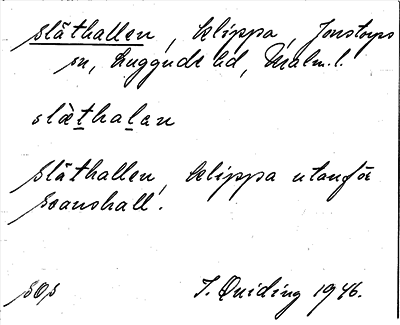 släthallen, klippa, Jonstorps
sn, Luggude hd, Malm. l.
slæ̀thalan
släthallen, klippa utanför
Svanshall.
sOs
I. Quiding 1946.